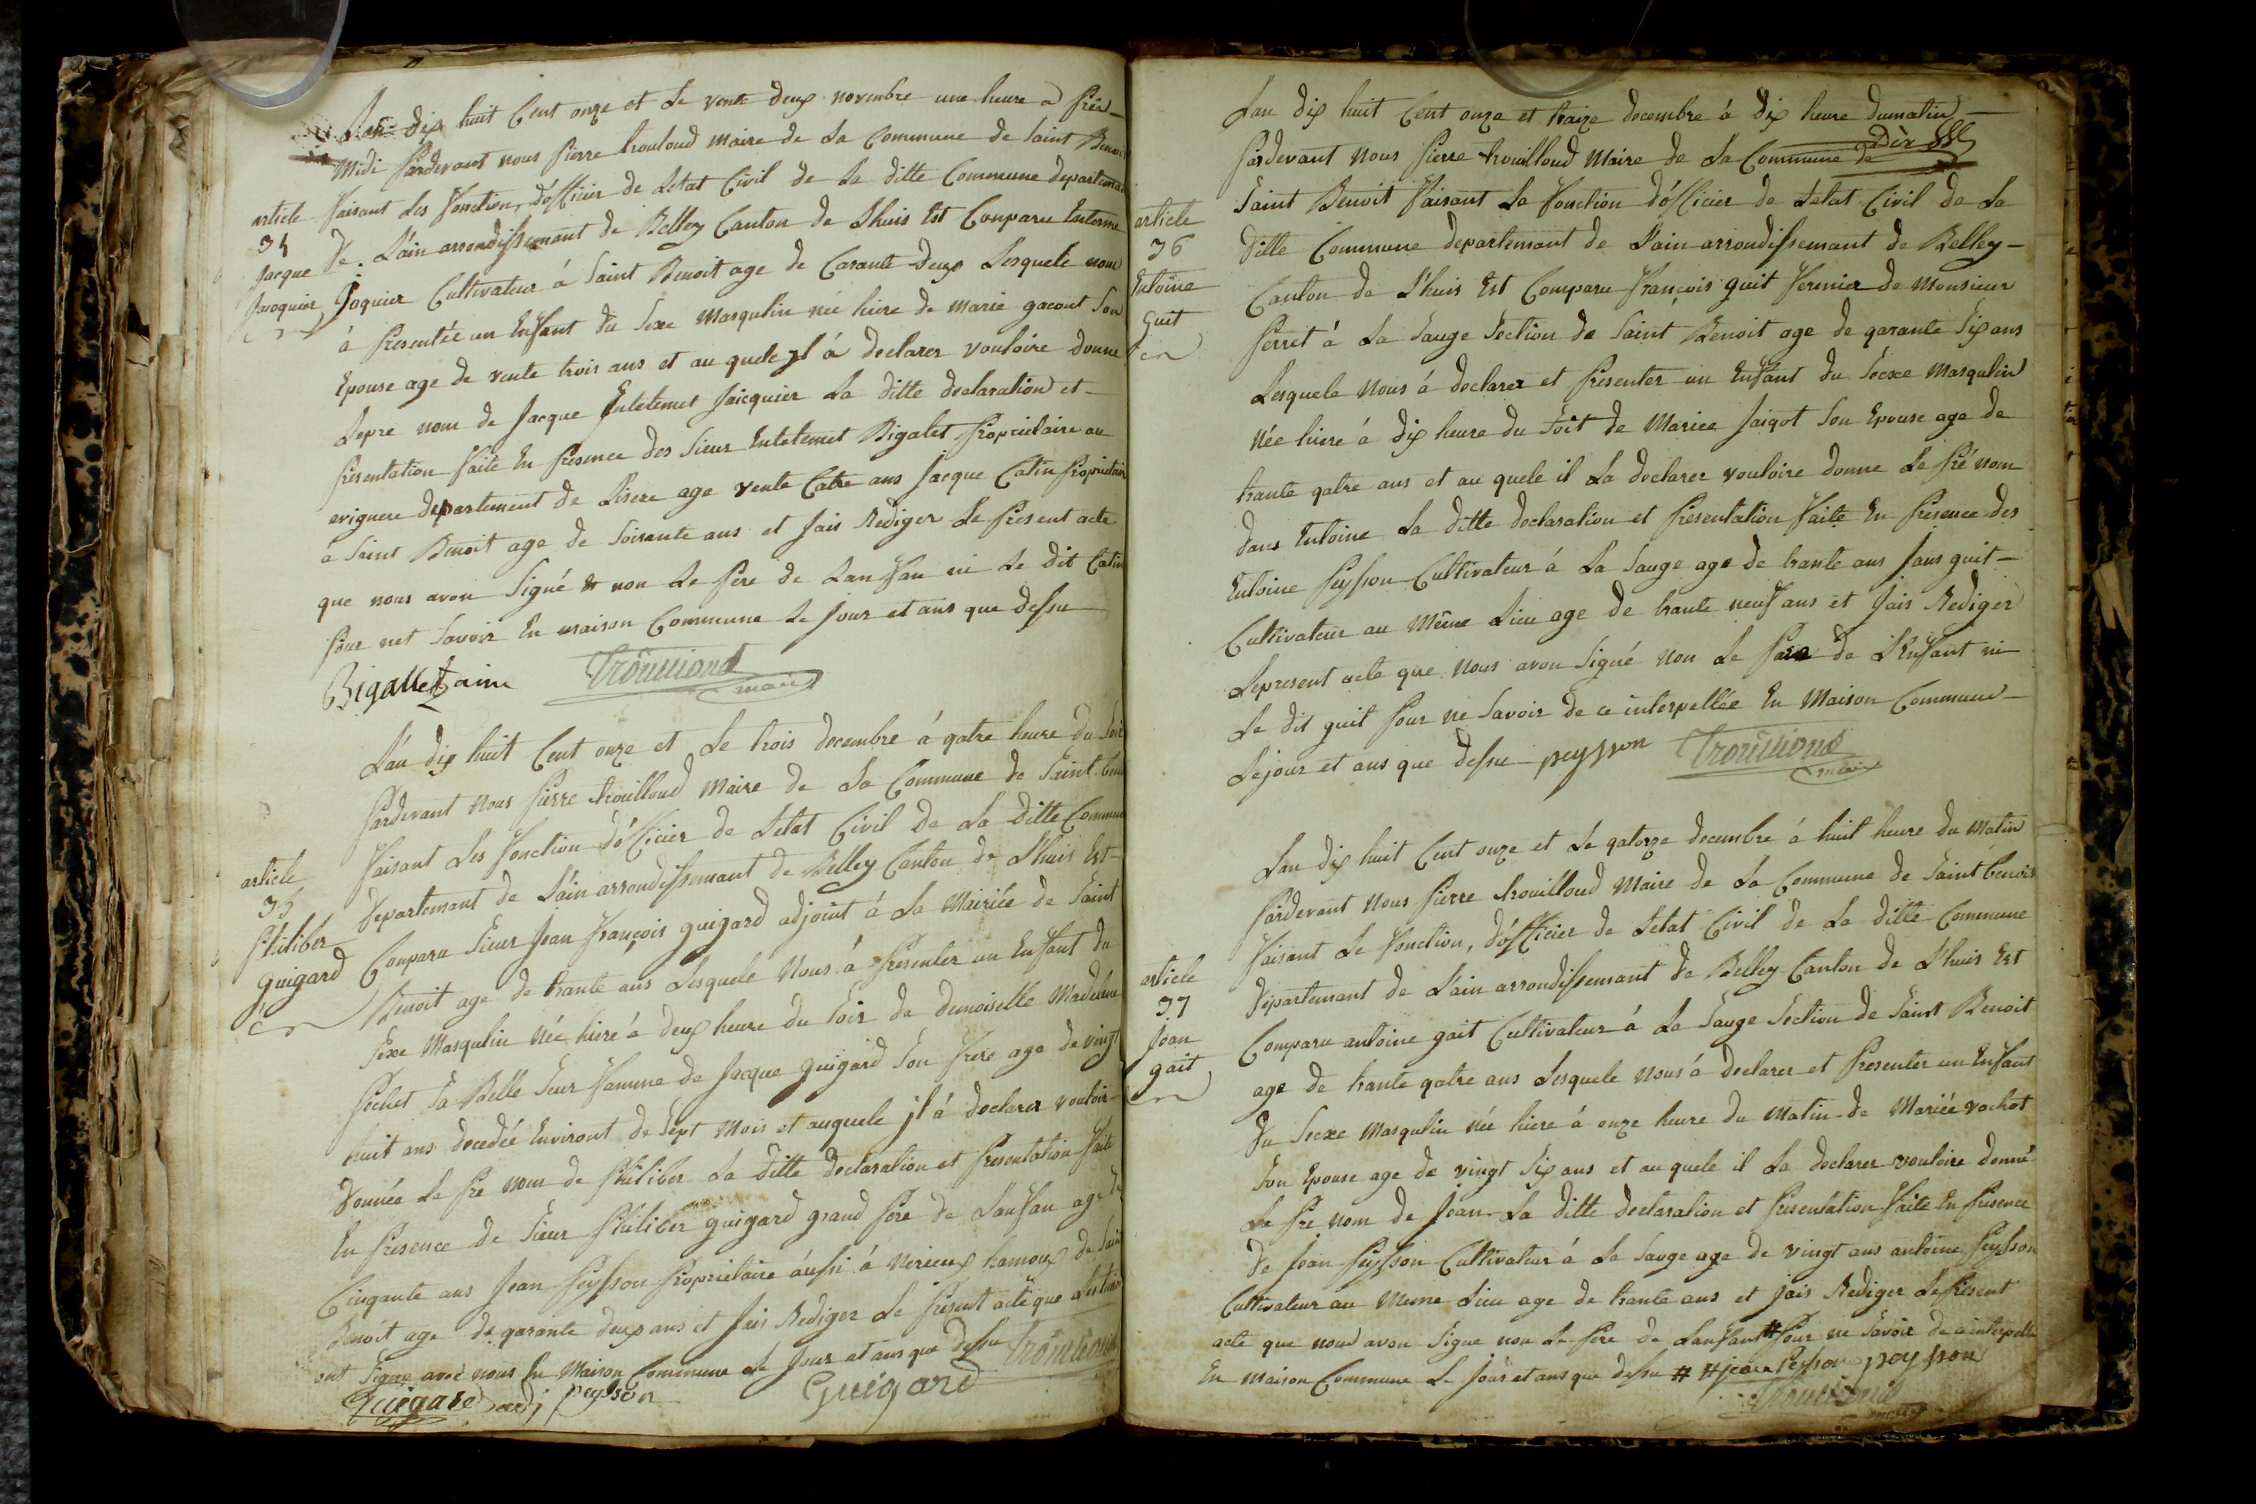 Lan dix huit Cent onze et Le vente deux novembre une heure a prês
Midi Pardevant nous Pierre trouloud maire de La Commune de Saint Benoi
faisant Les fonction, dofficier de Letat Civil de La ditte Commune departema
de Lain arrondissemant de Belley Canton de Lhuis Est Conparu Entoine
Joquier Cultivateur á Saint Benoit age de Carante deux Lesquele nous
á Presentée un Enfant du Sexe Masqulin née hiere de Marie gacont Son
Epouse age de vente trois ans et au quele jl á declarer vouloire donne
Lepre nom de Jacque Entetemet Jaicquier La ditte declaration et
Presentation faite En Presence des Sieur Entetemet Bigalet Propriétaire au
avignere departement de Lisere age vente Catre ans Jacque Catin Propriétaire
á Saint Benoit age de Soisante ans et Jais Rediger Le Present acte
que nous avon Signé & non Le Pere de Lanfan ni Le dit Catin
Pour net Savoir En maison Commune Le Jour et ans que dessu
Bigallet aine Trouilloud maire
article
34
Jacque
Jacquier
Lán dix huit Cent onze et Le trois decembre á qatre heure du Soir
Pardevant Nous Pierre trouilloud Maire de La Commune de Saint Benoi
faisant Les fonction dófficier de Letat Civil de La ditte Commune
departemant de Láin arrondissemant de Belley Canton de Lhuis Est
Conparu Sieur Jean françois guigard adjoint á La Mairiée de Saint
Benoit age de trante ans Lesquele Nous á Presenter un Enfant du
Sexe Masqulin Née hiere á deux heure du Soir de demoiselle Madelene
Pochet Sa Belle Seur famme de Jacque guigard Son frere age de vingt
huit ans decedéé Environt de Sept Mois et auquele jl á declarer vouloir
donnée Le Pre nom de Philiber La ditte declaration et Presentation faite
En Presence de Sieur Philiber guigard grand Pere de Lanfan age de
Cinqante ans Jean Peysson Propriétaire áussi á verieux hamoux de Saint
Benoit age de qarante deux ans et Jais Rediger Le Present acte que
ont Signé avec nous En Maison Commune Le Jour et ans que dessu Trouilloud
Guigard adj peysson Guigard
article
35
Philiber
guigard
Lan dix huit Cent onze et traize decembre á dix heure dumatin
Pardevant Nous Pierre trouilloud Maire de La Commune de
Saint Benoit faisant La fonction dófficier de Letat Civil de La
ditte Commune departemant de Láin arrondissemant de Belley
Canton de Lhuis Est Comparu françois guit fermier de Monsieur
Perret á La Sauge Section de Saint Benoit age de qarante Six ans
Lesquele Nous á declarer et Presenter un Enfant du Secxe Masqulin
Née hiere á dix heure du Soit de Mariee Jaiqot Son Epouse age de
trante qatre ans et au quele il La declarer vouloire donne Le Pré nom
dans Entoine La ditte declaration et Presentation faite En Presence des
Entoine Peysson Cultivateur á La Sauge age de trante ans Jans guit
Cultivateur au Même Lieu age de trante neuf ans et Jais Rediger
Lepresent acte que Nous avon Signé Non Le Pere de LEnfant ni
Le dit guit Pour Ne Savoir de ce interpellée En Maison Commune
Lejour et ans que dessu peysson Trouilloud maire
article
36
Entoine
Guit
Lan dix huit Cent onze et Le qatorze decembre á huit heure du Matin
Pardevant Nous Pierre trouilloud Maire de La Commune de Saint benoit
faisant Le fonction, dófficier de Letat Civil de La ditte Commune
departemant de Lain arrondissemant de Belley Canton de Lhuis Est
Comparu antoine gait Cultivateur á La Sauge Section de Saint Benoit
age de trante qatre ans Lesquele Nous á declarer et Presenter un Enfant
du Secxe Masqulin née hiere á onze heure du Matin de Mariée vachot
Son Epouse age de vingt Six ans et au quele il La declarer vouloire donné
Le Pre nom de Jean La ditte declaration et Presentation faite En Presence
de Jean Peysson Cultivateur á La Sauge age de vingt ans antoine Peysson
Cultivateur au Meme Lieu age de trante ans et Jais Rediger LePresent
acte que nous avon Signe non Le Pere de Lanfant # Pour ne Savoir de ce interpelle
En maison Commune Le Jour et ans que dessu # # jean Peysson peysson
Trouilloud maire
article
37
Jean
gait